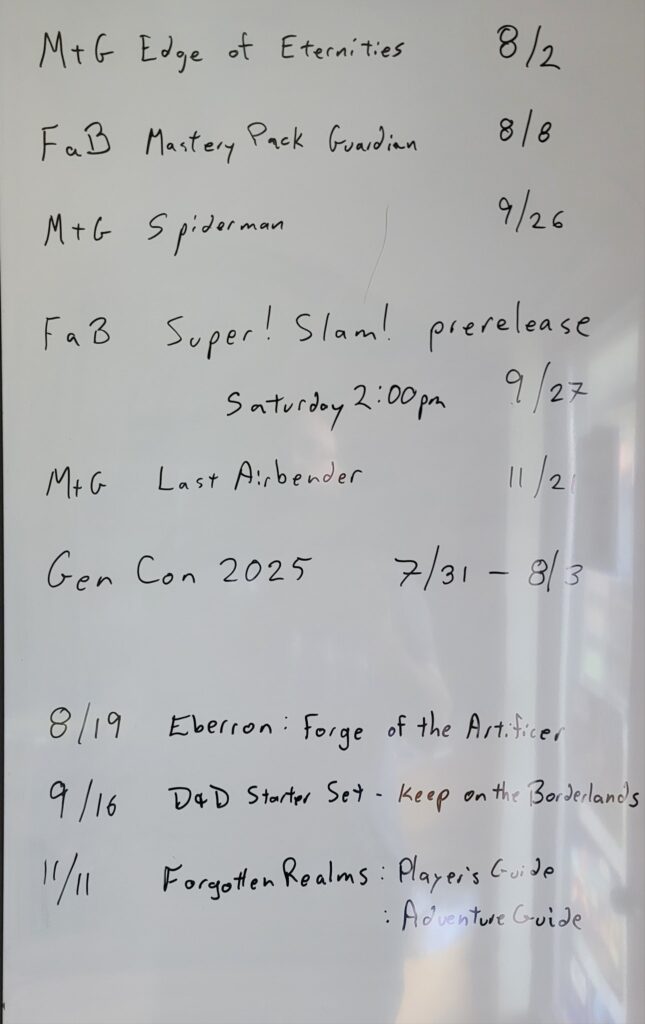 M+G Edge of Eternities 8/2
FaB Mastery Pack Guardian 8/8
M+G Spiderman 9/26
FaB Super! Slam! prerelease
Saturday 2:00pm 9/27
M+G Last Airbender 11/21
Gen Con 2025 7/31 - 8/3
8/19 Eberron: Forge of the Artificer
9/16 D&D Starter Set - Keep on the Borderlands
11/11 Forgotten Realms: Player's Guide
: Adventure Guide